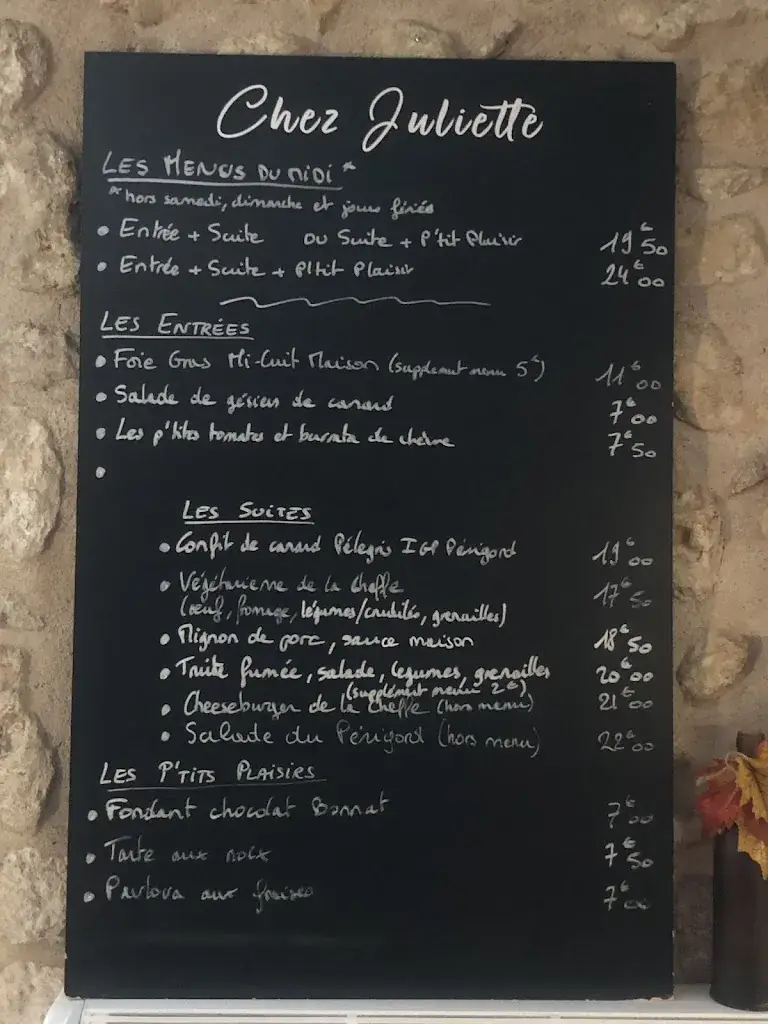 Chez Juliette
LES MENUS DU MIDI *
* hors samedi, dimanche et jours fériés
• Entrée + Suite ou Suite + P'tit Plaisir 19€50
• Entrée + Suite + P'tit Plaisir 24€00
LES ENTRÉES
• Foie Gras Mi-Cuit Maison (supplément menu 5€) 11€00
• Salade de gésiers de canard 7€00
• Les p'tites tomates et burrata de chèvre 7€50
•
LES SUITES
• Confit de canard Pélegris IGP Périgord 19€00
• Végétarienne de la cheffe 17€50
(œuf, fromage, légumes/crudités, grenailles)
• Mignon de porc, sauce maison 18€50
• Truite fumée, salade, légumes, grenailles 20€00
(supplément menu 2€)
• Cheeseburger de la Cheffe (hors menu) 21€00
• Salade du Périgord (hors menu) 22€00
LES P'TITS PLAISIRS
• Fondant chocolat Bonnat 7€00
• Tarte aux noix 7€50
• Pavlova aux fraises 7€00